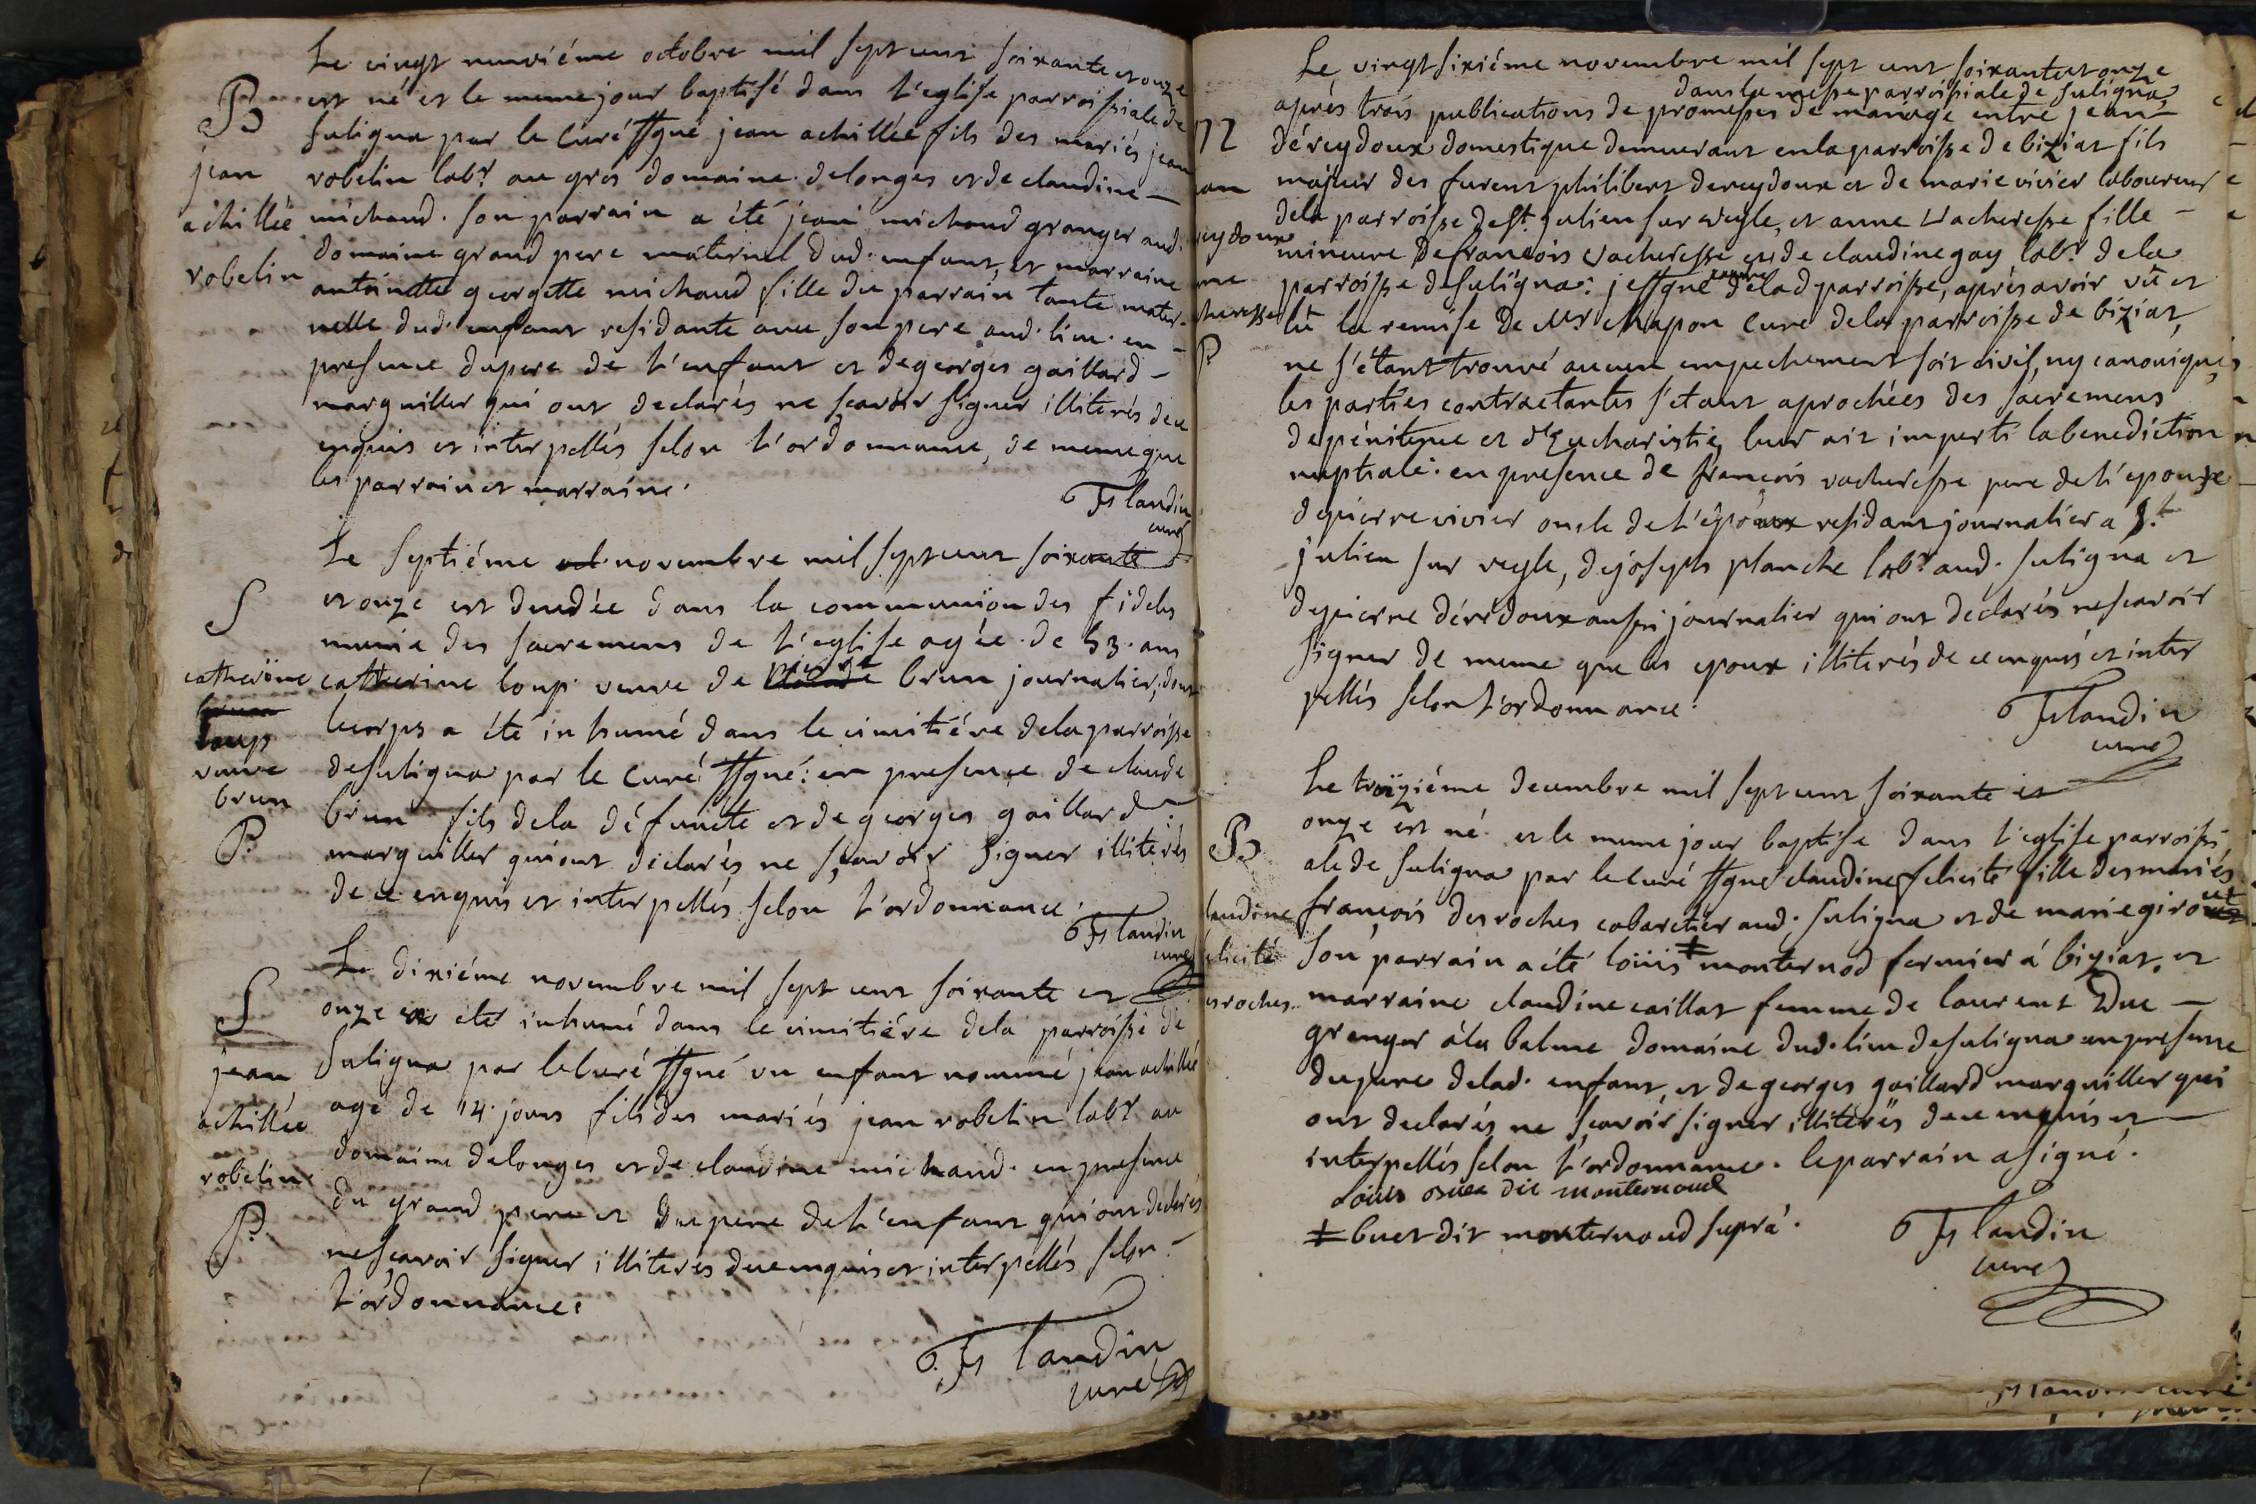 Le vingt neuviéme octobre mil sept cent soixante et onze
B
est né et le meme jour baptisé dans l'eglise parroissiale de
suligna par le curé ssgné jean achillée fils des mariés jean
jean
robelin labr. au gros domaine delonges et de claudine —
achillée
michaud. son parrain a été jean michaud granger aud.
robelin
domaine grand pere maternel dud. enfant, et marraine
antoinette georgette michaud fille du parrain tante mater-
nelle dud. enfant residante avec son pere aud. lieu en —
presence dupere de l'enfant et de georges gaillard —
marguiller qui ont declarés ne scavoir signer illiterés de ce
enquis et interpellés selon l'ordonnance, de meme que
les parrain et marraine.
Flandin
curé
Le septiéme novembre mil sept cent soixante
S
et onze est decedée dans la communion des fideles
munie des sacremens de l'eglise agée de 53. ans
catherine
catherine loup veuve de pierre brun journalier, dont
loup
le corps a été inhumé dans le cimitiére dela parroisse
veuve
desuligna par le curé ssgné: en presence de claude
brun
brun fils dela défuncte et de georges gaillard
P.
marguiller qui ont déclarés ne sçavoir signer illiterés
de ce enquis et interpellés selon l'ordonnance.
Flandin
curé
Le dixiéme novembre mil sept cent soixante et
S
onze a été inhumé dans le cimitiére dela parroisse de
jean
suligna par le curé ssgné un enfant nommé jean achillée
achillée
agé de 14. jours fils des mariés jean robelin labr. au
robelin
domaine delonges et de claudine michaud. en presence
P.
du grand pere et du pere de l'enfant qui ont declarés
ne scavoir signer illiterés de ce enquis et interpellés selon —
l'ordonnance.
Flandin
curé
Le vingt sixiéme novembre mil sept cent soixante et onze
dans la messe parroissiale de suligna
aprés trois publications de promesses de mariage entre jean —
déreydoux domestique demeurant en la parroisse de biziat fils
majeur des furent philibert dereydoux et de marie vivier laboureur
dela parroisse de st. julien sur veyle, et anne vacheresse fille —
mineure de francois vacheresse et de claudine gay labr. dela
parroisse desuligna: je ssgné curé delad parroisse, aprés avoir vû et
lû la remise de Mr chapon curé dela parroisse de biziat,
P.
ne s'étant trouvé aucun empechement soit civil, ny canonique,
les parties contractantes s'etant aprochées des sacremens
de pénitence et d'Eucharistie, leur ait imparti la benediction
nuptiale. en presence de françois vacheresse pere de l'epouse
de pierre vivier oncle de l'époux residant journalier a st.
julien sur veyle, de joseph planche labr. aud. suligna et
de pierre déredoux aussi journalier qui ont declarés ne scavoir
signer de meme que les epoux illiterés de ce enquis et inter
pellés selon l'ordonnance.
Flandin
curé
Le troiziéme decembre mil sept cent soixante et
onze est né. et le meme jour baptise dans l'eglise parroissi
B
ale de suligna par le curé ssgné claudine felicité fille des mariés
françois desroches cabaretier aud. suligna et de marie girout
son parrain a été loüis ‡ monternod fermier á biziat, et
marraine claudine caillat femme de laurent Duc —
granger á la balme domaine dud. lieu desuligna en presence
du pere delad. enfant, et de georges gaillard marguiller qui
ont declarés ne sçavoir signer illiterés de ce enquis et —
interpellés selon l'ordonnance. le parrain a signé.
Loüis dit monternoud
‡ buet dit monternoud supra.
Flandin
curé